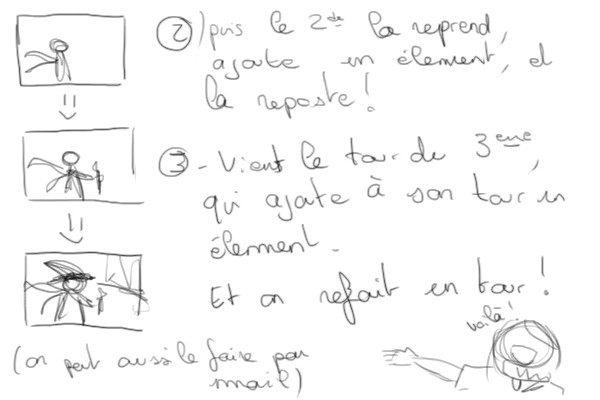 ②) puis le 2de la reprend,
ajoute un élement, et
la reposte!
③ - Vient le tour du 3eme,
qui ajoute à son tour un
élement.
Et on refait un tour!
voilà!
(on peut aussi le faire par
mail)